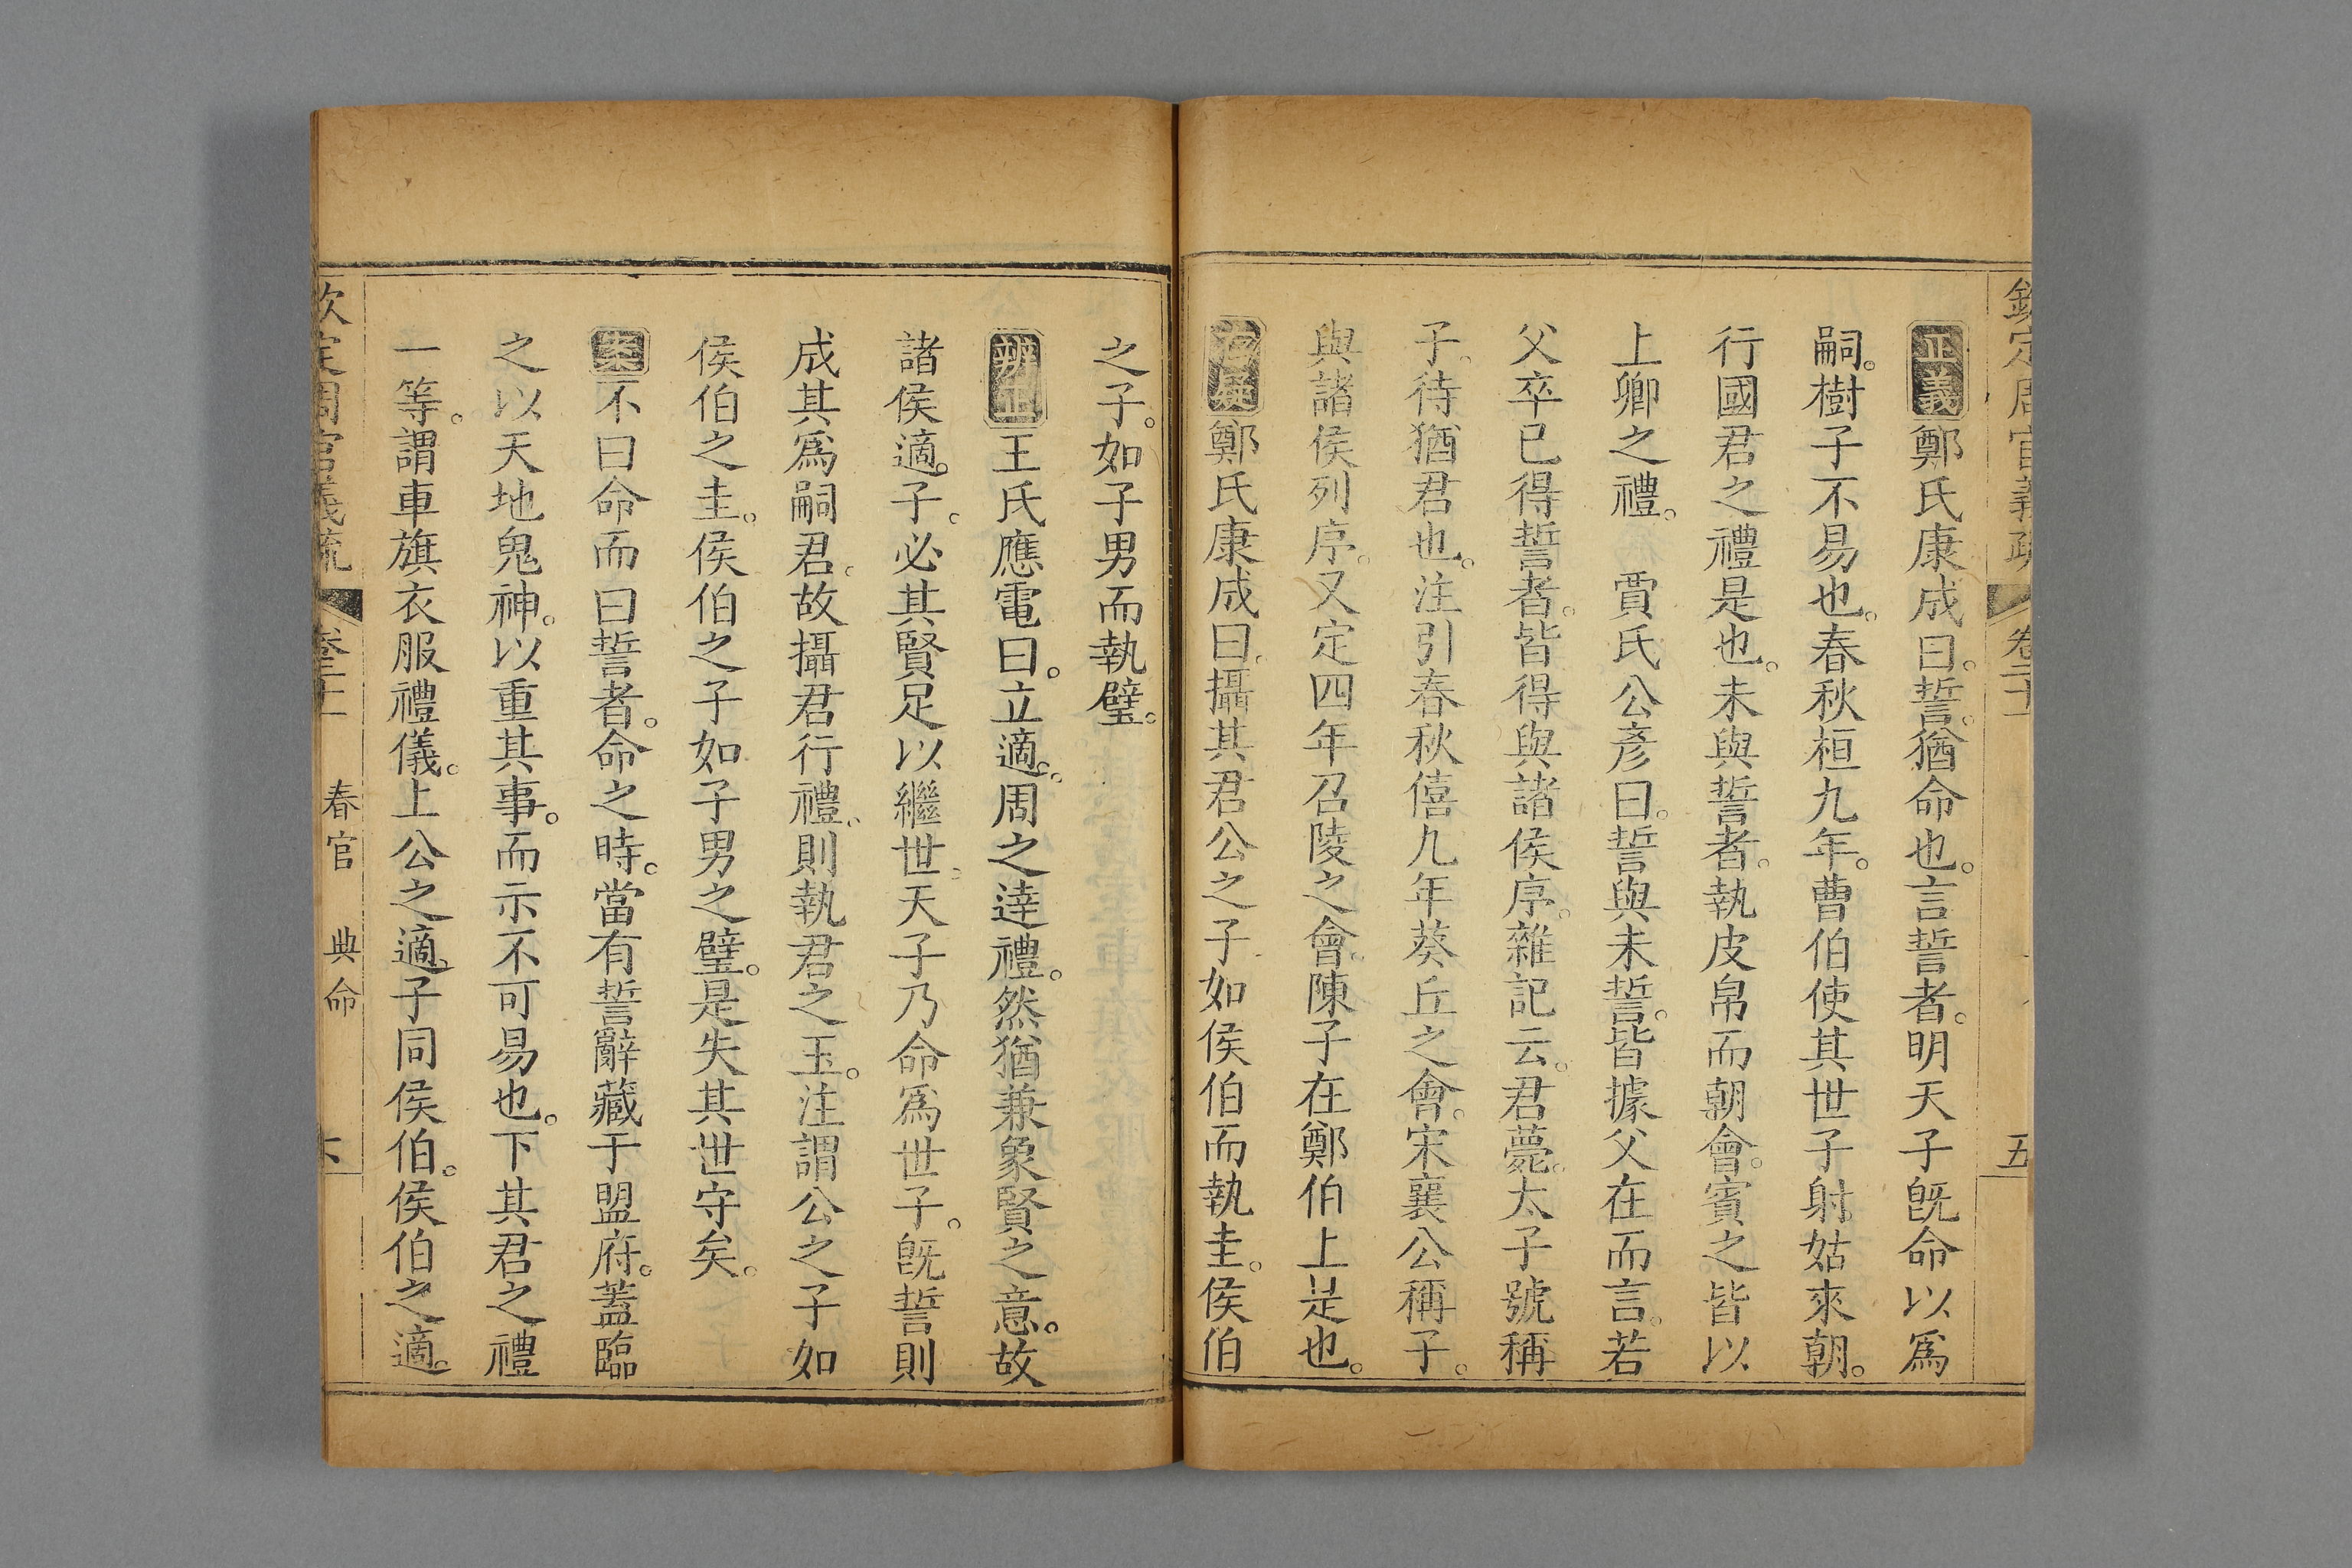 欽定周官義疏 卷二十一 五
正義鄭氏康成曰。誓。猶命也。言誓者。明天子旣命以爲
嗣。樹子不易也。春秋桓九年。曹伯使其世子射姑來朝。
行國君之禮是也。未與誓者。執皮帛而朝會。賓之皆以
上卿之禮。 賈氏公彥曰。誓與未誓。皆據父在而言。若
父卒已得誓者。皆得與諸侯序。雜記云。君薨。太子號稱
子。待猶君也。注引春秋僖九年葵丘之會。宋襄公稱子。
與諸侯列序。又定四年召陵之會。陳子在鄭伯上是也。
存疑鄭氏康成曰。攝其君公之子如侯伯而執圭。侯伯
之子。如子男而執璧。
辨正王氏應電曰。立適。周之達禮。然猶兼象賢之意。故
諸侯適子。必其賢足以繼世。天子乃命爲世子。旣誓則
成其爲嗣君。故攝君行禮。則執君之玉。注謂公之子如
侯伯之圭。侯伯之子如子男之璧。是失其世守矣。
案不曰命而曰誓者。命之時。當有誓辭藏于盟府。蓋臨
之以天地鬼神。以重其事。而示不可易也。下其君之禮
一等。謂車旗衣服禮儀。上公之適子同侯伯。侯伯之適。
欽定周官義疏 卷二十一 春官 典命